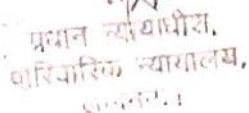 प्रधान न्यायाधीश,
पारिवारिक न्यायालय,